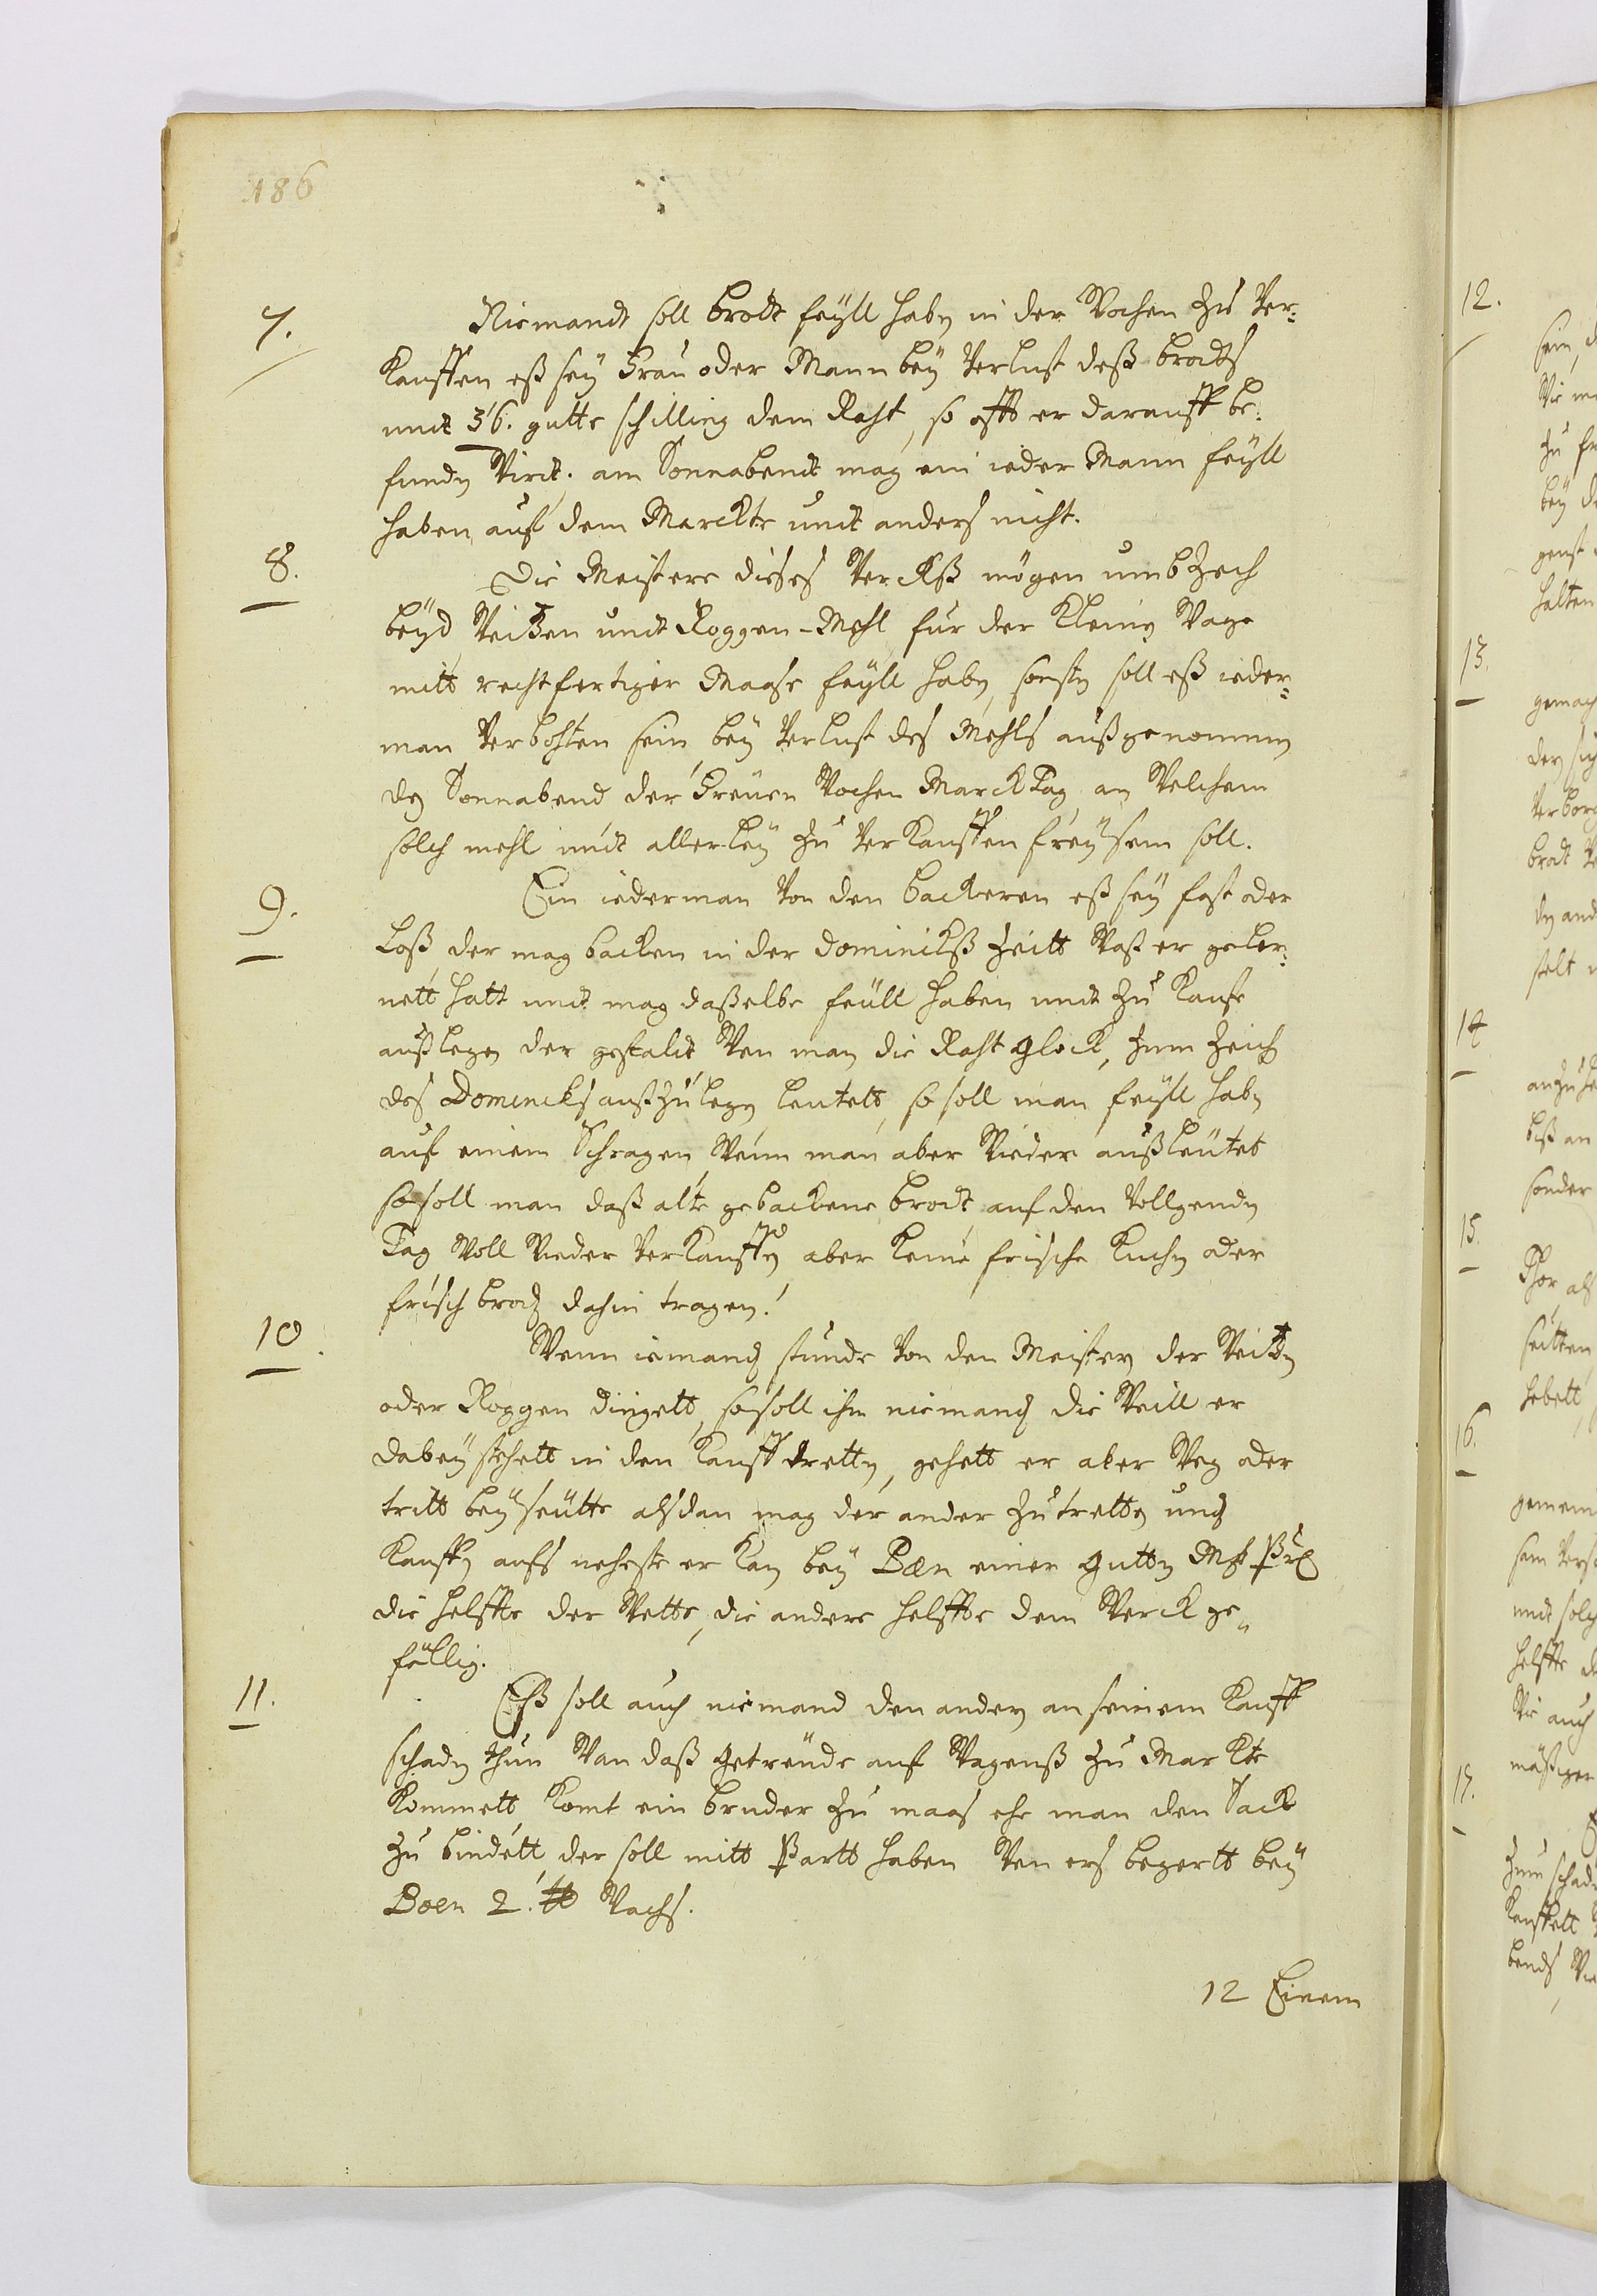 186
7. Niemandt soll brodt feÿll haben in der Wochen zu Ver:
Kauffen eß seÿ Frau oder Mann beÿ Verlust deß brodts
undt 36. gutte schilling dem Raht, so offt er darauff be:
funden Wirdt. am Sonnabendt mag ein ieder Mann feÿll
haben auf dem Marckte undt anders nicht.
8. Die Meistere dieses Werckß mögen umb Zech
beÿd Weitzen undt Roggen-Mehl für der Kleinen Wage
mitt rechtfertiger Maase feÿll haben, sonsten soll eß ieder:
man Verbohten sein beÿ Verlust des Mehls außgenommen
den Sonnabend der Freüen Wochen MarckTag, an Welchem
solch mehl undt allerleÿ zu Verkauffen freÿ sein soll.
9. Ein iederman Von den backeren eß seÿ fast oder
Loß der mag backen in der dominickß Zeitt Waß er geler:
nett hatt undt mag daßelbe feüll haben undt zu Kaufe
außlegen der gestaldt Wen man die Raht glock, zum Zeich
des Domincks außzulegen leutett, so soll man feÿll haben
auf einem Schragen, Wenn man aber Wieder außleütet
so soll man daß alte gebackene brodt auf den Vollgenden
Tag Woll Wieder Verkauffen aber keine frische Kuchen oder
frisch brod dahin tragen.
10. Wenn iemand stunde Von den Meistern der Weitzen
oder Roggen dingett, so soll ihm niemand die Weill er
dabeÿ stehett in den Kauff tretten, gehett er aber Weg oder
tritt beÿ seütte alsdan mag der ander zutretten und
Kauffen aufs neheste er kan beÿ Pæn einer gutten Mk
die helffte der Wette, die andere helffte dem Werck ge„
fällig.
11. Eß soll auch niemand den andern an seinem Kauff
schaden thun Wan daß getreüde auf Wagenß zu Markte
Kommett, Komt ein bruder zu maas ehe man den Sack
zu bindett, der soll mitt Partt haben Wen ers begertt beÿ
Poen 2. ℔ Wachs.
12 Einem
12.
sein, d
zu fr
beÿ d
halten
13.
gemach
den sich
Verborg
brodt
stelt
14
biß an
sonder
15.
Thor als
seitten
hebett
16.
gemein
undt solch
helffte d
Wie auch
mäßiger
17.
zum schad
Kauffett